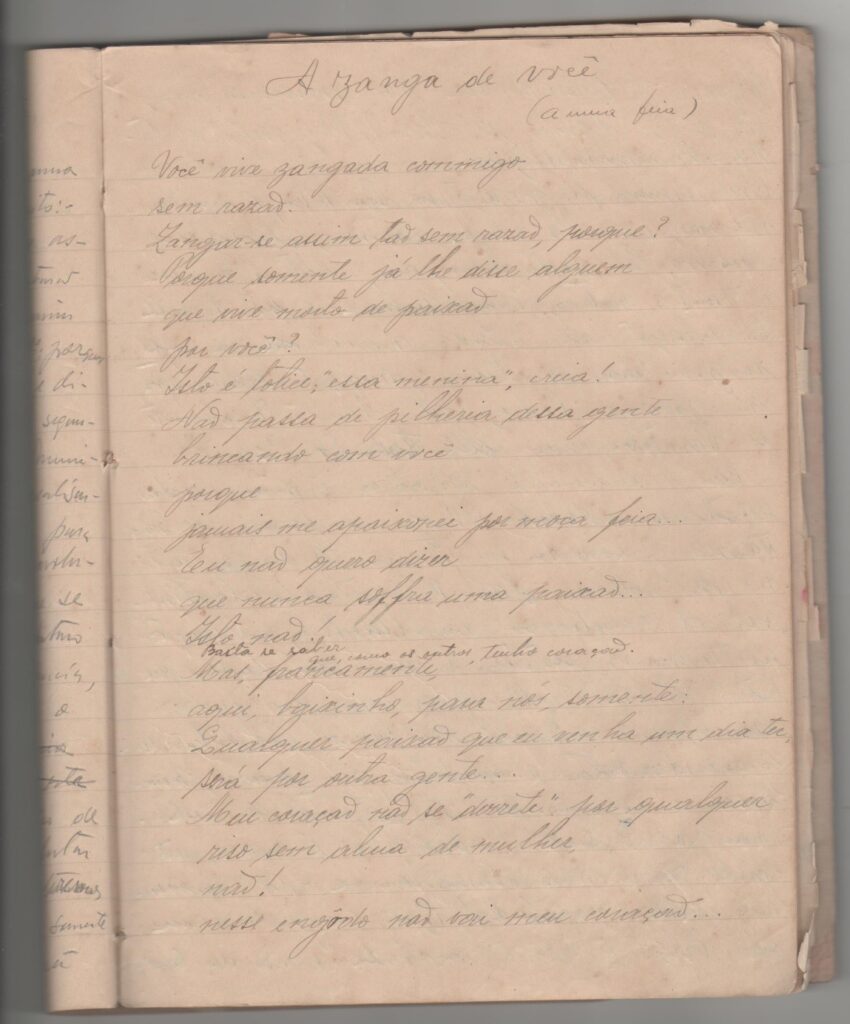 A zanga de você
(a uma feia)
Você vive zangada commigo
sem razaõ.
Zangar-se assim taõ sem razaõ, porque?
Porque somente já lhe disse alguem
que vive morto de paixaõ
por você?
Isto é tolice, "essa menina", creia!
Naõ passa de pilheria dessa gente
brincando com você
porque
jamais me apaixonei por moça feia...
Eu naõ quero dizer
que nunca soffra uma paixaõ...
Isto naõ!
Basta se saber
que, como os outros, tenho coraçaõ.
Mas, francamente,
aqui, baixinho, para nós, somente:
Qualquer paixaõ que eu venha um dia ter,
será por outra gente...
Meu coraçaõ naõ se "derrete" por qualquer
riso sem alma de mulher
naõ!
nesse engôdo naõ vai meu coraçaõ...
porque
di-
segui-
se
o
de